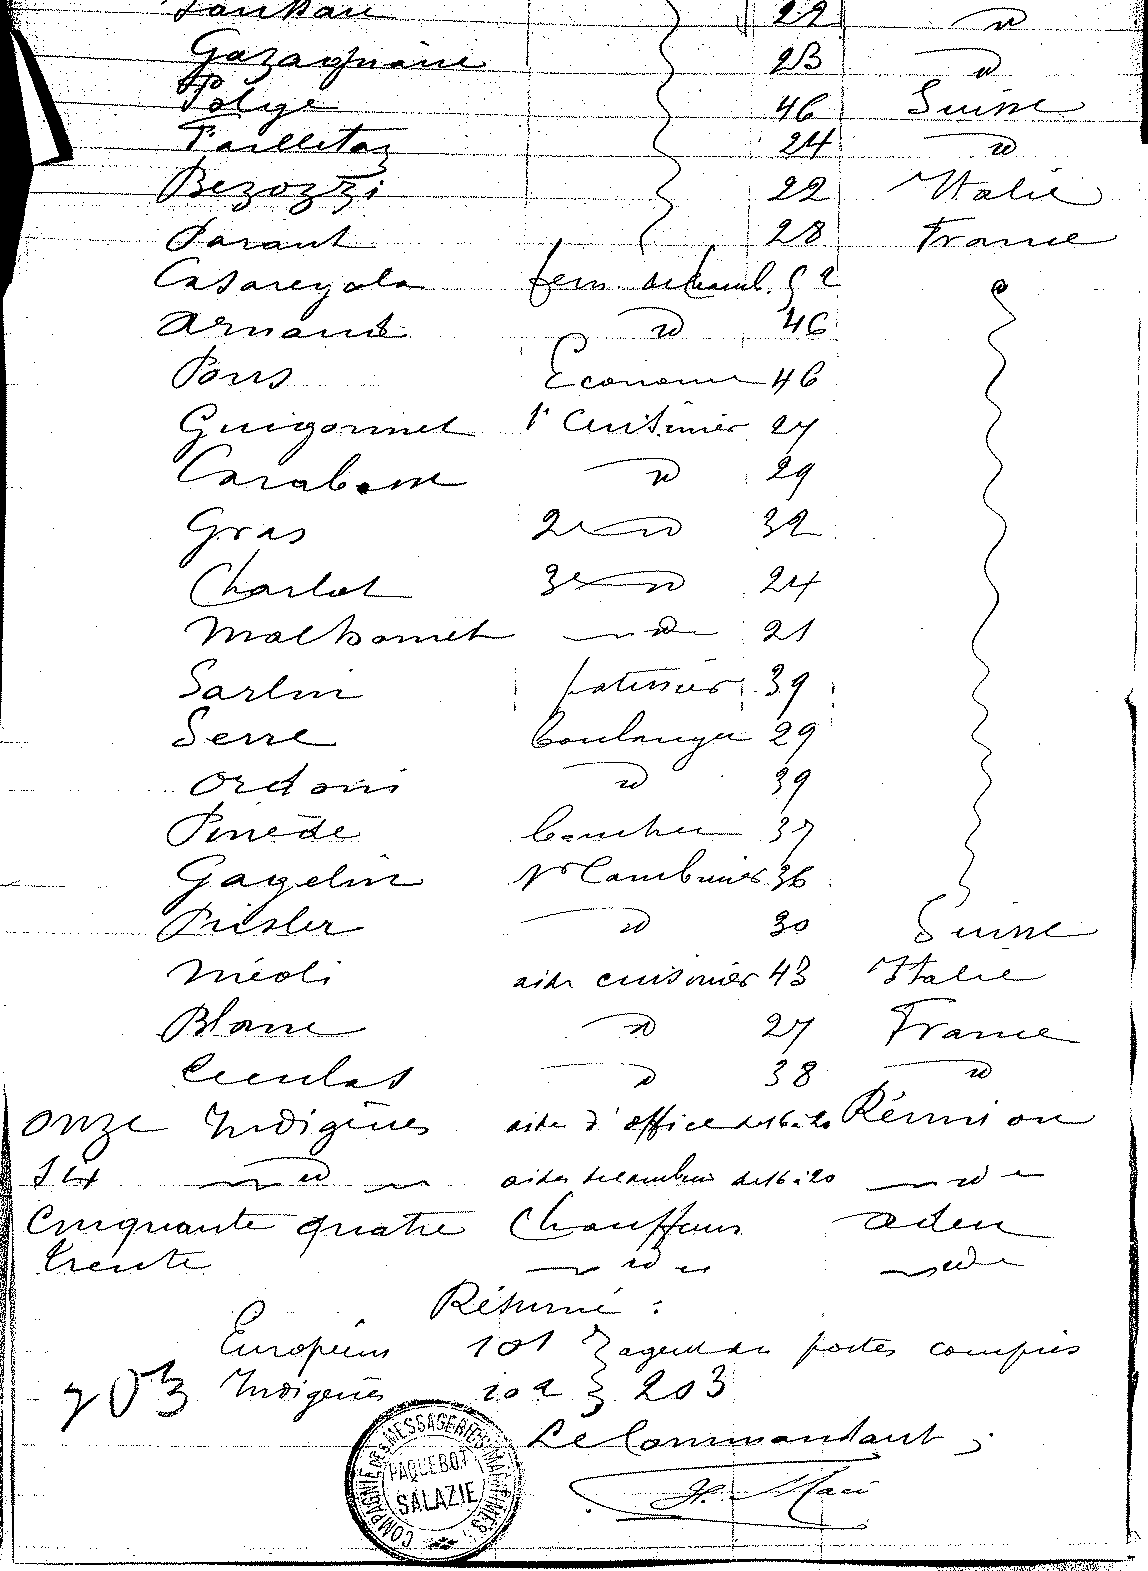 22 d
Gazagnaire 23 d
Polge 46 Suisse
Failletaz 24 d
Bezozzi 22 Italie
Parant 28 France
Casareyola fem. de chamb. 52 d
Arnaud d 46
Pons Econome 46
Guigonnet 1r Cuisinier 27
Carabasse d 29
Gras 2e d 32
Charlot 3e d 24
Malhomet d 21
Sarlin patissier 39
Serre boulanger 29
Ordoni d 39
Pinède boucher 37
Gagelin 1r Cambusier 36
Pisler d 30 Suisse
Méoli aide cuisinier 43 Italie
Blanc d 27 France
d 38 d
Onze Indigènes aides d'office de 16 à 20 Réunion
Six d aides de cambuse de 16 à 20 d
Cinquante quatre Chauffeurs Aden
trente d d
Résumé :
Européens 101 } agent des postes compris
203 Indigènes 102 } 203
Le Commandant,
COMPAGNIE DES MESSAGERIES MARITIMES
PAQUEBOT
SALAZIE